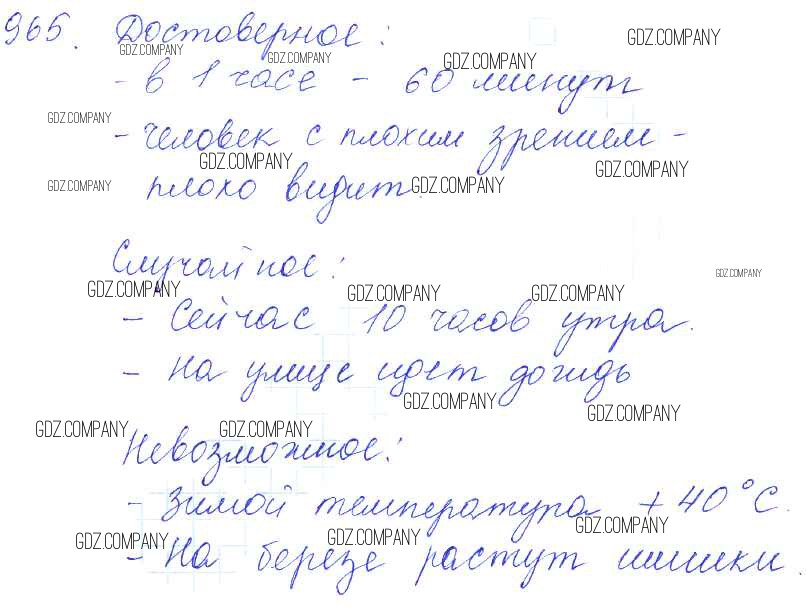 965. Достоверное:
GDZ.COMPANY GDZ.COMPANY GDZ.COMPANY GDZ.COMPANY
- в 1 часе - 60 минут
GDZ.COMPANY
- человек с плохим зрением -
GDZ.COMPANY GDZ.COMPANY
GDZ.COMPANY плохо видит. GDZ.COMPANY
Случайное:
GDZ.COMPANY
GDZ.COMPANY GDZ.COMPANY GDZ.COMPANY
- Сейчас 10 часов утра.
- На улице идет дождь
GDZ.COMPANY GDZ.COMPANY
GDZ.COMPANY GDZ.COMPANY
Невозможное:
- Зимой температура +40°С.
GDZ.COMPANY GDZ.COMPANY GDZ.COMPANY
- На березе растут шишки.